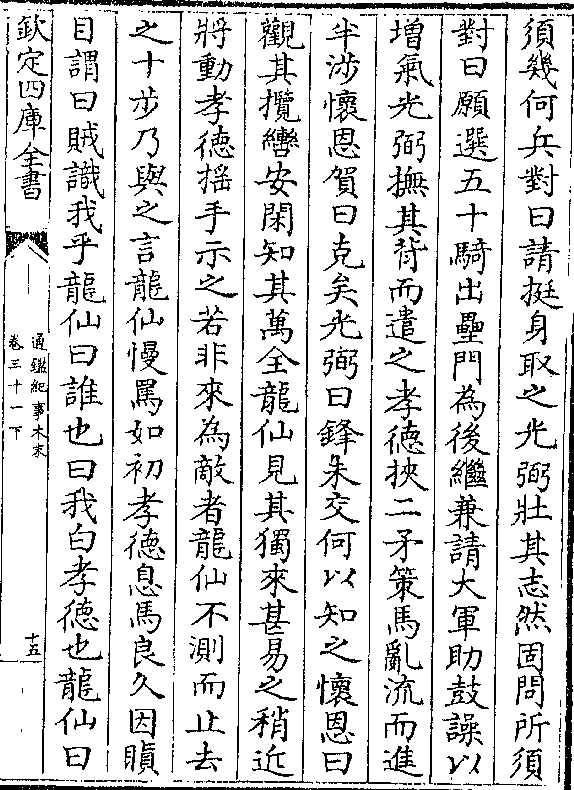 須幾何兵對曰請挺身取之光弼壯其志然固問所須
對曰願選五十騎出壘門為後繼兼請大軍助鼓譟以
増氣光弼撫其背而遣之孝徳挾二矛策馬亂流而進
半涉懷恩賀曰克矣光弼曰鋒未交何以知之懷恩曰
觀其攬轡安閑知其萬全龍仙見其獨來甚易之稍近
將動孝徳揺手示之若非來為敵者龍仙不測而止去
之十步乃與之言龍仙慢罵如初孝徳息馬良久因瞋
目謂曰賊識我乎龍仙曰誰也曰我白孝徳也龍仙曰
欽定四庫全書
通鑑紀事本末
卷三十一下
十五